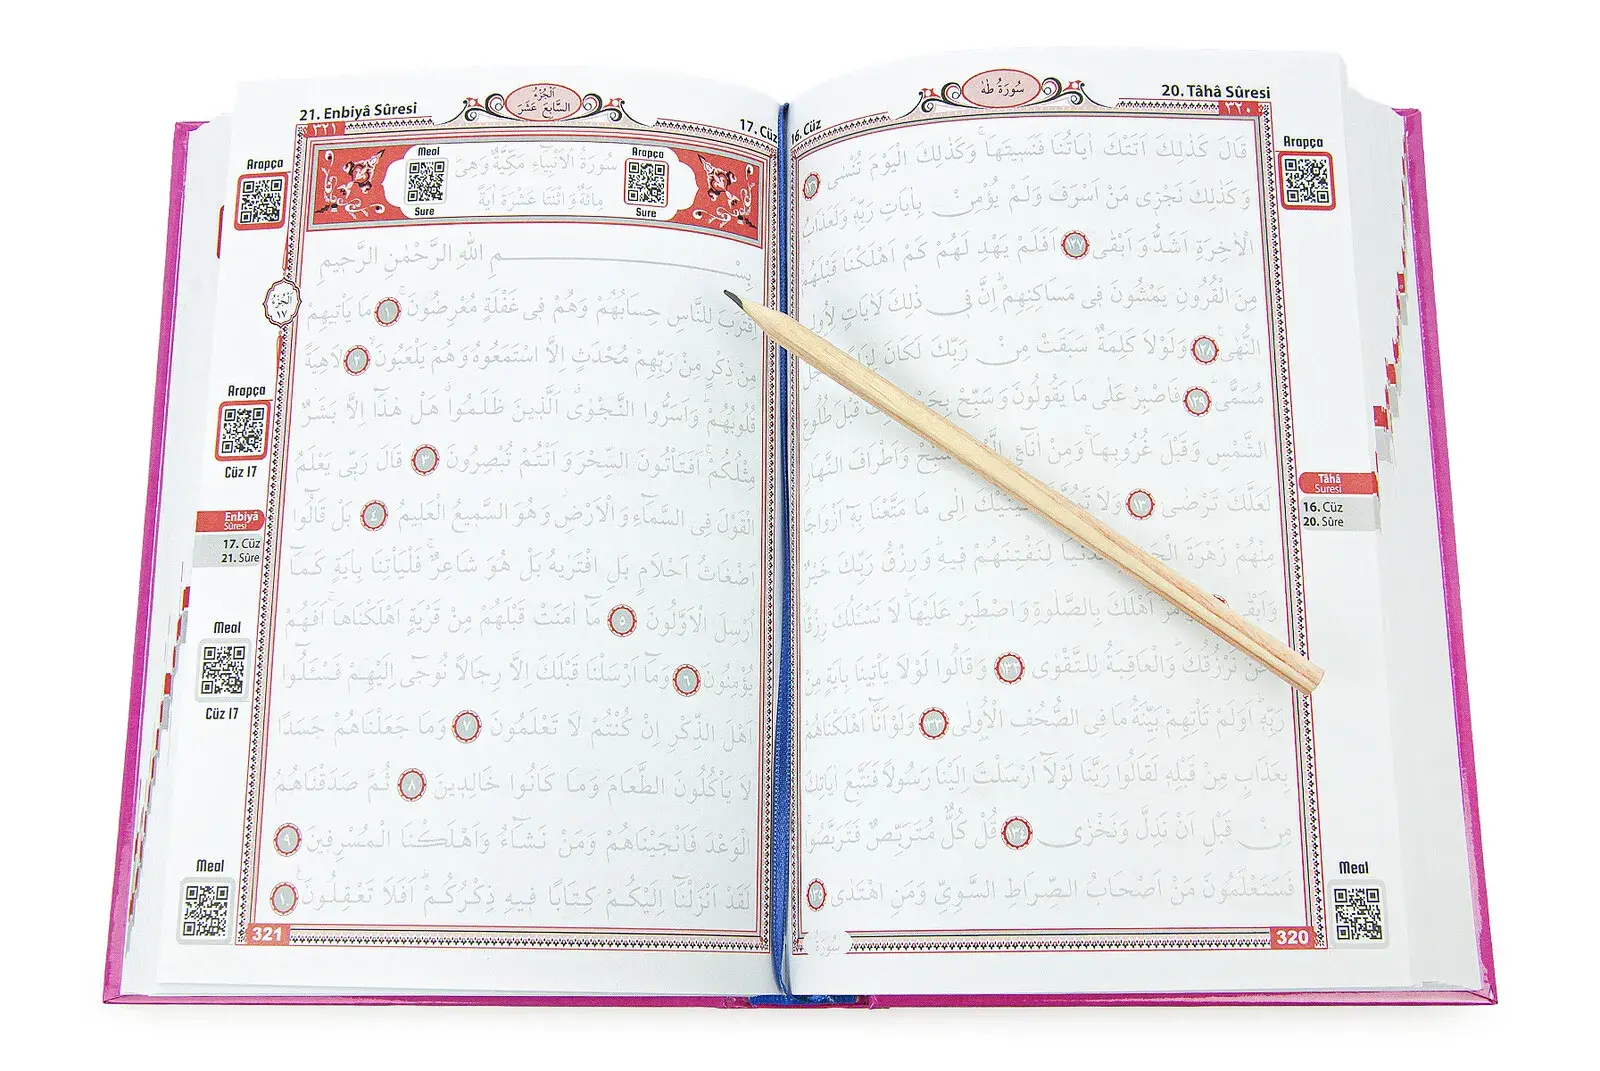 20. Tâhâ Sûresi
سُورَةُ طٰهٰ
16. Cüz
٣٢٠
Arapça
قَالَ كَذٰلِكَ اَتَتْكَ اٰيَاتُنَا فَنَسٖيتَهَاۚ وَكَذٰلِكَ الْيَوْمَ تُنْسٰى
وَكَذٰلِكَ نَجْزٖى مَنْ اَسْرَفَ وَلَمْ يُؤْمِنْ بِاٰيَاتِ رَبِّهٖۜ وَلَعَذَابُ
الْاٰخِرَةِ اَشَدُّ وَاَبْقٰى ١٢٧ اَفَلَمْ يَهْدِ لَهُمْ كَمْ اَهْلَكْنَا قَبْلَهُمْ
مِنَ الْقُرُونِ يَمْشُونَ فٖى مَسَاكِنِهِمْۜ اِنَّ فٖى ذٰلِكَ لَاٰيَاتٍ لِاُولِى
النُّهٰى ١٢٨ وَلَوْلَا كَلِمَةٌ سَبَقَتْ مِنْ رَبِّكَ لَكَانَ
مُسَمًّى ١٢٩ فَاصْبِرْ عَلٰى مَا يَقُولُونَ وَسَبِّحْ قَبْلَ طُلُوعِ
الشَّمْسِ وَقَبْلَ غُرُوبِهَاۚ وَمِنْ اٰنَائِ وَاَطْرَافَ النَّهَارِ
لَعَلَّكَ تَرْضٰى ١٣٠ وَلَا اِلٰى مَا مَتَّعْنَا بِهٖٓ اَزْوَاجًا
مِنْهُمْ زَهْرَةَ لِنَفْتِنَهُمْ فٖيهِۜ وَرِزْقُ رَبِّكَ خَيْرٌ
وَاَبْقٰى اَهْلَكَ بِالصَّلٰوةِ وَاصْطَبِرْ عَلَيْهَاۜ لَا نَسْـَٔلُكَ رِزْقًا
نَحْنُ نَرْزُقُكَۜ وَالْعَاقِبَةُ لِلتَّقْوٰى ١٣٢ وَقَالُوا لَوْلَا يَاْتٖينَا بِاٰيَةٍ مِنْ
رَبِّهٖۜ اَوَلَمْ تَاْتِهِمْ بَيِّنَةُ مَا فِى الصُّحُفِ الْاُولٰى ١٣٣ وَلَوْ اَنَّٓا اَهْلَكْنَاهُمْ
بِعَذَابٍ مِنْ قَبْلِهٖ لَقَالُوا رَبَّنَا لَوْلَٓا اَرْسَلْتَ اِلَيْنَا رَسُولًا فَنَتَّبِعَ اٰيَاتِكَ
مِنْ قَبْلِ اَنْ نَذِلَّ وَنَخْزٰى ١٣٤ قُلْ كُلٌّ مُتَرَبِّصٌ فَتَرَبَّصُواۚ
فَسَتَعْلَمُونَ مَنْ اَصْحَابُ الصِّرَاطِ السَّوِيِّ وَمَنِ اهْتَدٰى ١٣٥
320
سُورَةُ
Tâhâ
Suresi
16. Cüz
20. Sûre
Meal
21. Enbiyâ Sûresi
اَلْجُزْءُ
السَّابِعَ عَشَرَ
17. Cüz
٣٢١
Arapça
Meal
Sure
سُورَةُ الْاَنْبِيَاءِ مَكِّيَّةٌ وَهِىَ
مِائَةٌ وَ اثْنَتَا عَشْرَةَ اٰيَةً
Arapça
Sure
بِسْمِ اللّٰهِ الرَّحْمٰنِ الرَّحٖيمِ
اِقْتَرَبَ لِلنَّاسِ حِسَابُهُمْ وَهُمْ فٖى غَفْلَةٍ مُعْرِضُونَۚ ١ مَا يَاْتٖيهِمْ
مِنْ ذِكْرٍ مِنْ رَبِّهِمْ مُحْدَثٍ اِلَّا اسْتَمَعُوهُ وَهُمْ يَلْعَبُونَۙ ٢ لَاهِيَةً
قُلُوبُهُمْۜ وَاَسَرُّوا النَّجْوٰىۗ اَلَّذٖينَ ظَلَمُواۗ هَلْ هٰذَٓا اِلَّا بَشَرٌ
مِثْلُكُمْۚ اَفَتَاْتُونَ السِّحْرَ وَاَنْتُمْ تُبْصِرُونَ ٣ قَالَ رَبّٖى يَعْلَمُ
الْقَوْلَ فِى السَّمَٓاءِ وَالْاَرْضِۘ وَهُوَ السَّمٖيعُ الْعَلٖيمُ ٤ بَلْ قَالُٓوا
اَضْغَاثُ اَحْلَامٍ بَلِ افْتَرٰيهُ بَلْ هُوَ شَاعِرٌۚ فَلْيَاْتِنَا بِاٰيَةٍ كَمَٓا
اُرْسِلَ الْاَوَّلُونَ ٥ مَٓا اٰمَنَتْ قَبْلَهُمْ مِنْ قَرْيَةٍ اَهْلَكْنَاهَاۚ اَفَهُمْ
يُؤْمِنُونَ ٦ وَمَٓا اَرْسَلْنَا قَبْلَكَ اِلَّا رِجَالًا نُوحٖٓى اِلَيْهِمْ فَسْـَٔلُٓوا
اَهْلَ الذِّكْرِ اِنْ كُنْتُمْ لَا تَعْلَمُونَ ٧ وَمَا جَعَلْنَاهُمْ جَسَدًا
لَا يَاْكُلُونَ الطَّعَامَ وَمَا كَانُوا خَالِدٖينَ ٨ ثُمَّ صَدَقْنَاهُمُ
الْوَعْدَ فَاَنْجَيْنَاهُمْ وَمَنْ نَشَٓاءُ وَاَهْلَكْنَا الْمُسْرِفٖينَ ٩
لَقَدْ اَنْزَلْنَٓا اِلَيْكُمْ كِتَابًا فٖيهِ ذِكْرُكُمْۜ اَفَلَا تَعْقِلُونَۚ ١٠
321
اَلْجُزْءُ
١٧
Arapça
Cüz 17
Enbiyâ
Sûresi
17. Cüz
21. Sûre
Meal
Cüz 17
Meal